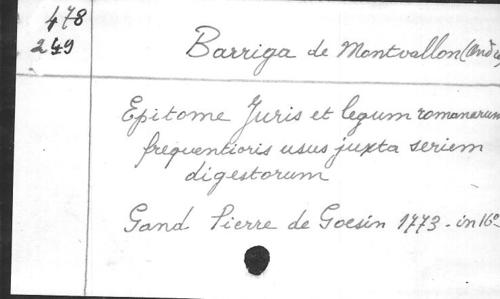 478
249
Barriga de Montvallon (André)
Epitome Juris et legum romanarum
frequentioris usus juxta seriem
digestorum
Gand Pierre de Goesin 1773 - in 16º